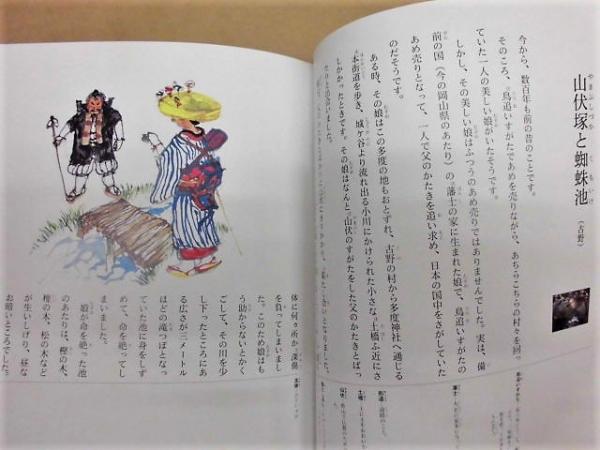 山伏塚と蜘蛛池
やまぶしづか
くもいけ
（古野）
今から、数百年も前の昔のことです。
そのころ、鳥追いすがたであめを売りながら、あちらこちらの村々を回っ
ていた一人の美しい娘がいたそうです。
しかし、その美しい娘はふつうのあめ売りではありませんでした。実は、備
前の国（今の岡山県のあたり）の藩士の家に生まれた娘で、鳥追いすがたの
あめ売りとなって、一人で父のかたきを追い求め、日本の国中をさがしていた
のだそうです。
ある時、その娘はこの多度の地もおとずれ、古野の村から多度神社へ通じる
本街道を歩き、城ヶ谷より流れ出る小川にかけられた小さな土橋ふ近にさ
しかかったときです。その娘はなんと、山伏のすがたをした父のかたきとばっ
たりと出会いました。
体に何ヶ所か、深傷
を負ってしまいまし
た。このため娘はも
う助からないとかく
ごして、その川を少
し下ったところにあ
る広さが三メートル
ほどの滝つぼとなっ
ていた池に身をしず
めて、命を絶ってし
まいました。
娘が命を絶った池
のあたりは、樫の木、
檜の木、松の木など
が生いしげり、昼な
お暗いところでした。